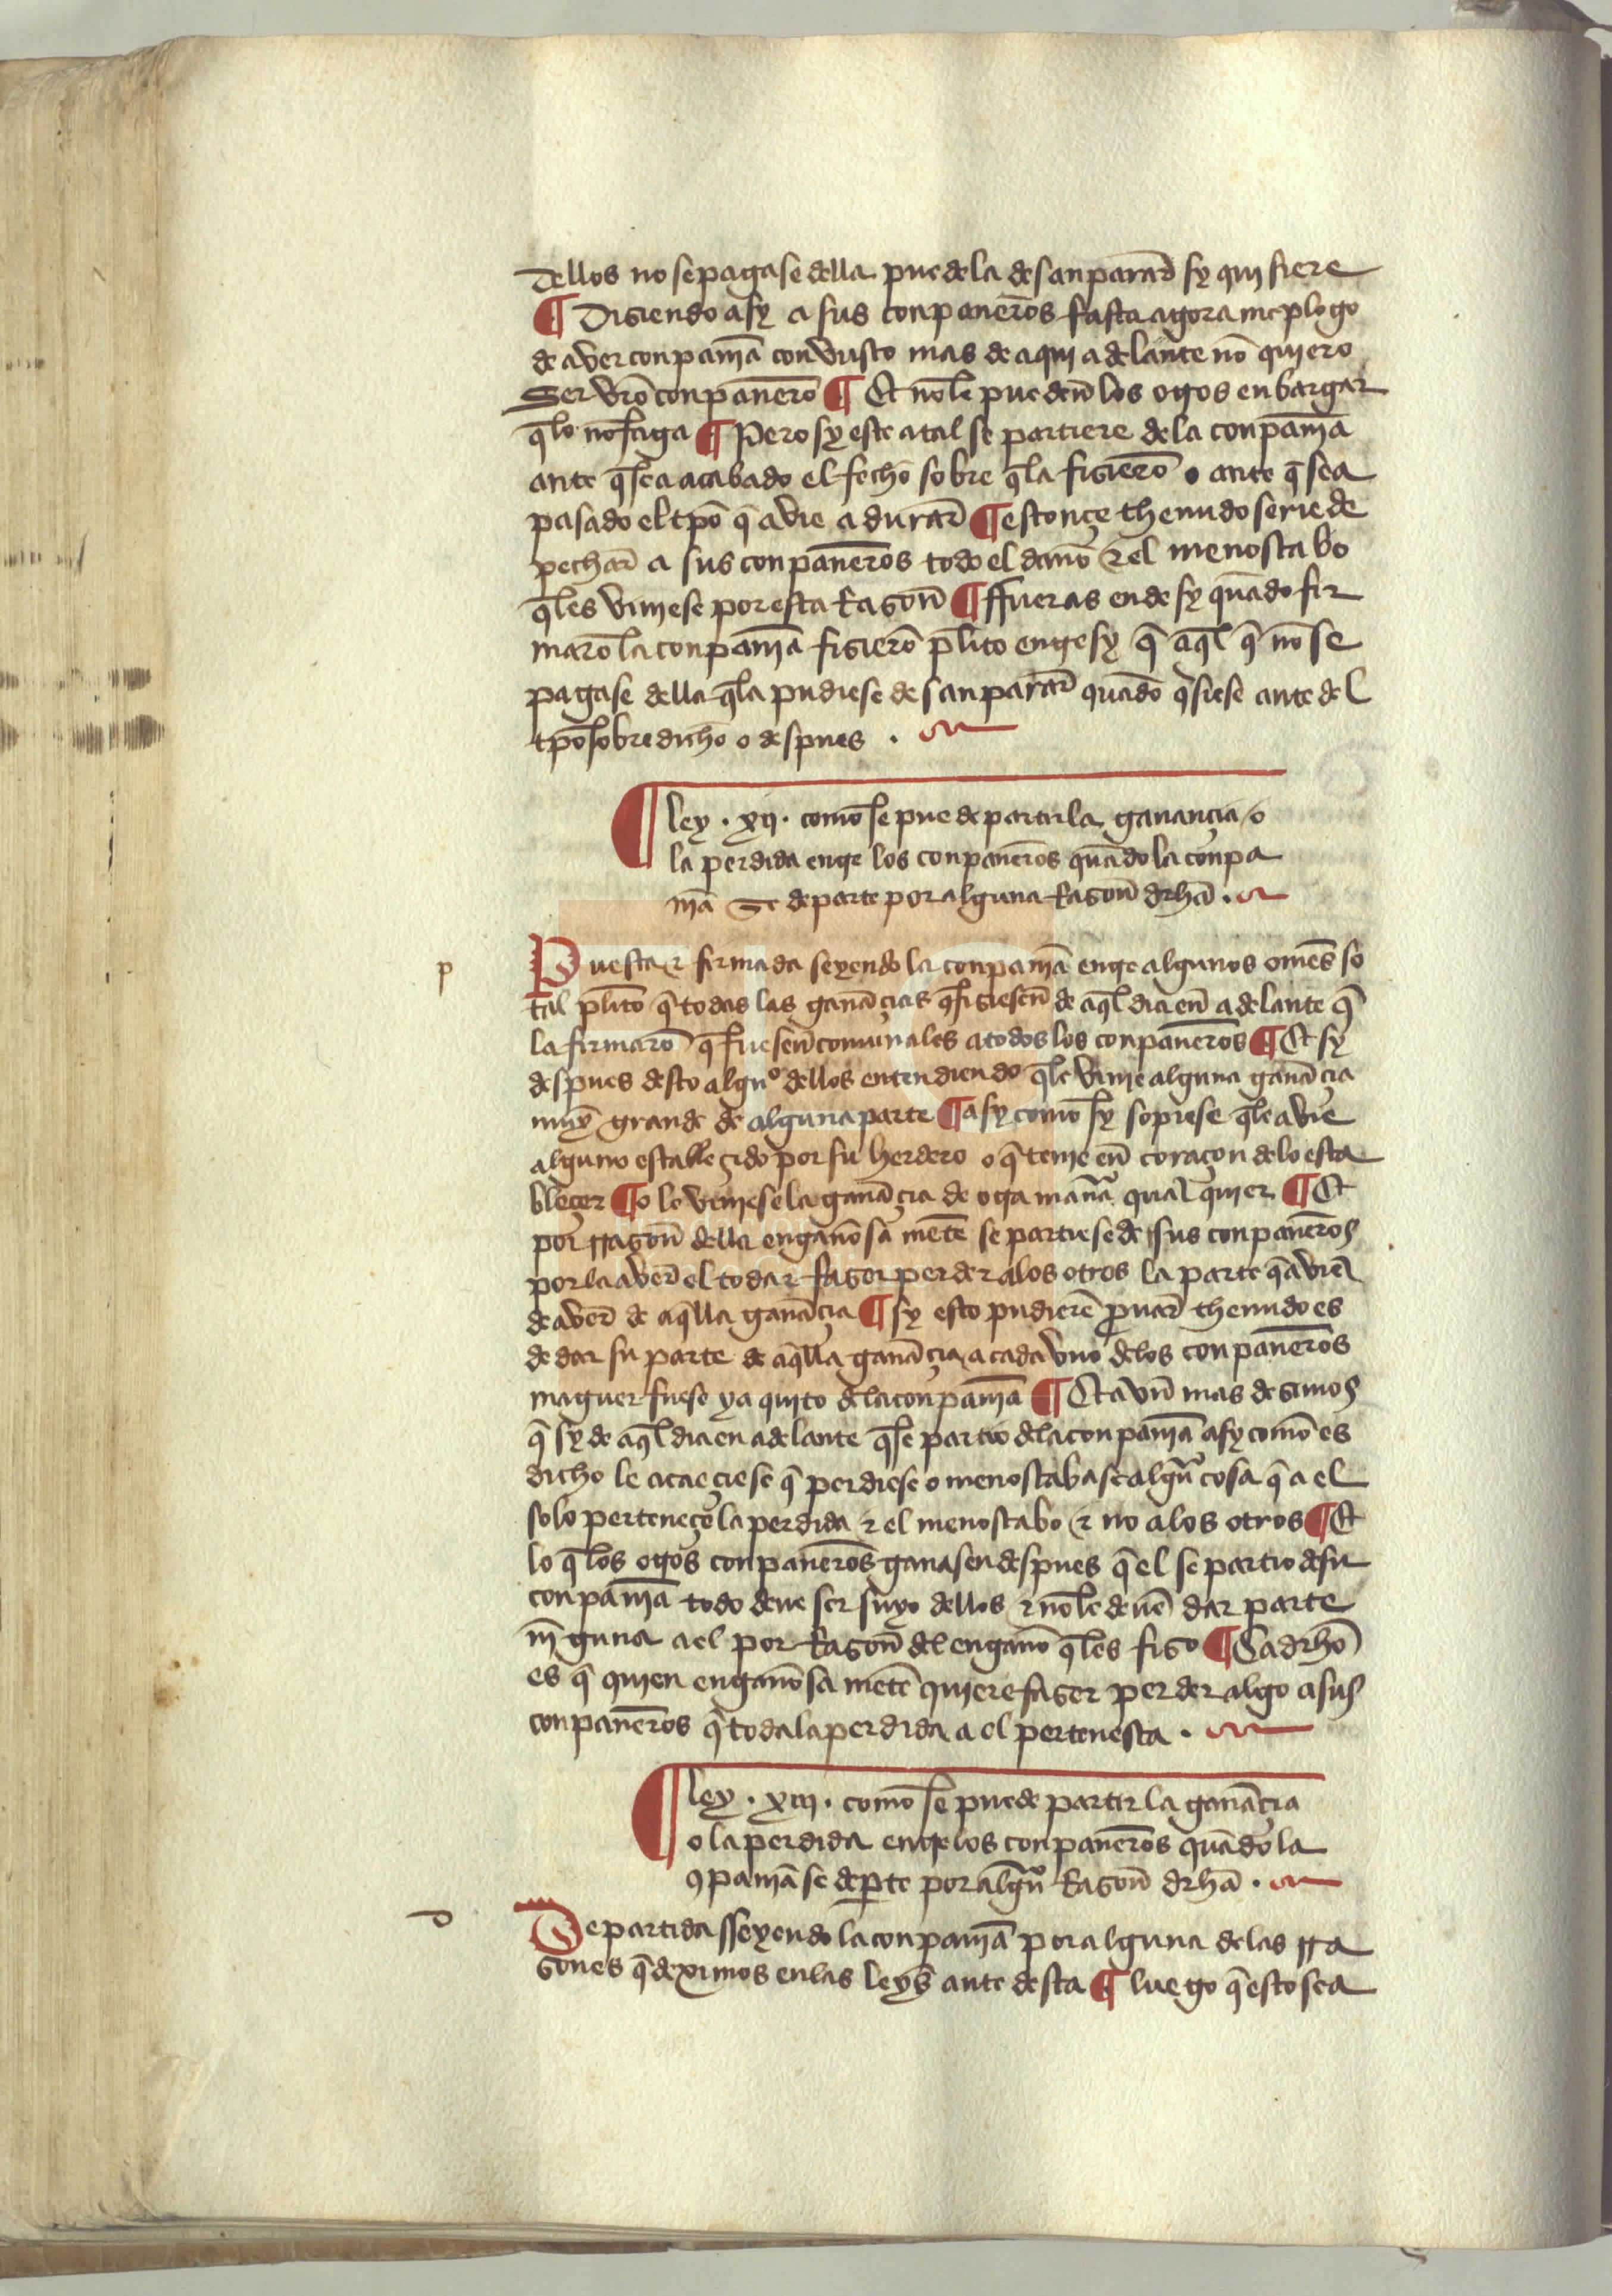 dellos no se pagase della puede la desanparar sy quisiere
¶ Disiendo asy a sus conpañeros fasta agora me plogo
de aver conpañia convusco mas de aqui adelante nō quiero
Ser vr̄o conpañero ¶ Et nōle puedēn los otros enbargar
q̄ lo nō faga ¶ Pero sy este atal se partiere de la conpañia
ante q̄ sea acabado el fecho sobre q̄ la fisierō o ante q̄ sea
pasado el tp̄o q̄ avie a durar ¶ estonçe thenudo serie de
pechar a sus conpañeros todo el daño & el menoscabo
q̄ les viniese por esta Rasoñ ¶ ffueras ende sy quādo fir
marō la conpañia fisierō pl̄ito entre sy q̄ aq̄l q̄ nō se
pagase della q̄ la pudiese desanparar quādo q̄siese ante del
tp̄o sobredicho o despues .
¶ ley . xij . comō se puede partir la ganançia o
la perdida entre los conpañeros quādo la conpa
ñia Se departe por alguna Rasoñ dicha .
p
Puesta & firmada seyendo la conpañia entre algunos omēs so
tal pl̄ito q̄ todas las ganāçias q̄ fisiesen de aq̄l dia en adelante q̄
la firmarō q̄ fuesen comunales a todos los conpañeros ¶ Et sy
despues desto alguº dellos entendiendo q̄ le vinie alguna ganāçia
muy grande de alguna parte ¶ asy comō sy sopiese q̄ le avie
alguno establesçido por su herdero o q̄ tenie en coraçon de lo esta
bleçer ¶ o le viniese la ganāçia de otra manª qual quier ¶ Et
por rrasoñ della engañosa mēte se partiese de sus conpañeros
por la aver el toda & faser perder a los otros la parte q̄ aviē
de aver de aq̄lla ganāçia ¶ sy esto pudierē prouar thenudo es
de dar su parte de aq̄lla ganāçia a cada vno de los conpañeros
maguer fuese ya quito de la conpañia ¶ Et avn mas desimos
q̄ sy de aq̄l dia en adelante q̄ se partio de la conpañia asy comō es
dicho le acaeçiese q̄ perdiese o menoscabase algūª cosa q̄ a el
solo perteneçe la perdida & el menoscabo & no a los otros ¶ Et
lo q̄ los otros conpañeros ganasen despues q̄ el se partio de su
conpañia todo deue ser suyo dellos & nōle deuē dar parte
nīguna a el por Rasoñ del engaño q̄ les fiso ¶ Ca drh̄o
es q̄ quien engañosa mēte quiere faser perder algo a sus
conpañeros q̄ toda la perdida a el pertenesca .
¶ ley . xiij . comō se puede partir la ganāçia
o la perdida entre los conpañeros quādo la
ꝯpañia se dep̄te por algūª Rasoñ dicha .
d
Departida sseyendo la conpañia por alguna de las rra
sones q̄ deximos en las leyēs ante desta ¶ luego q̄ esto sea